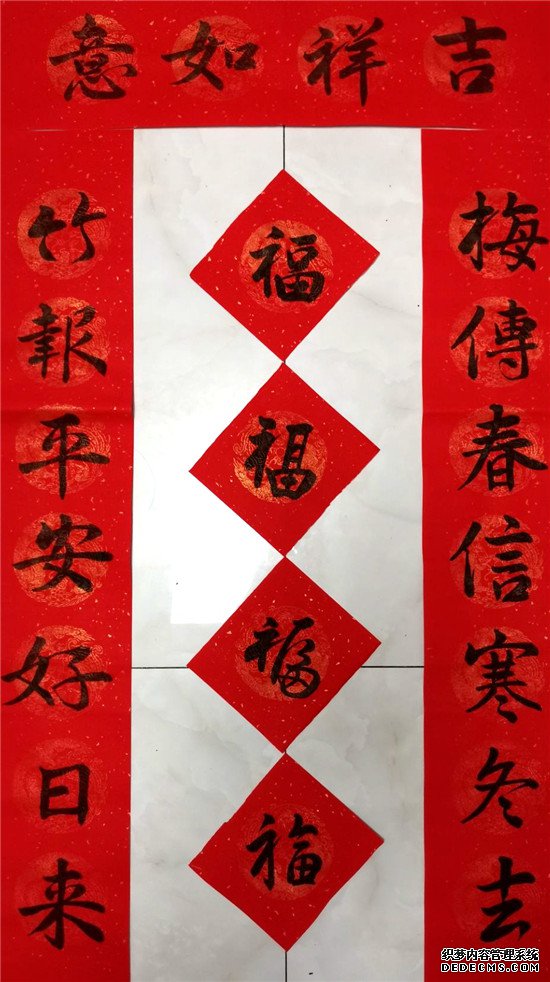 吉祥如意
梅傳春信寒冬去
竹報平安好日来
福
福
福
福
织梦内容管理系统
DEDECMS.COM